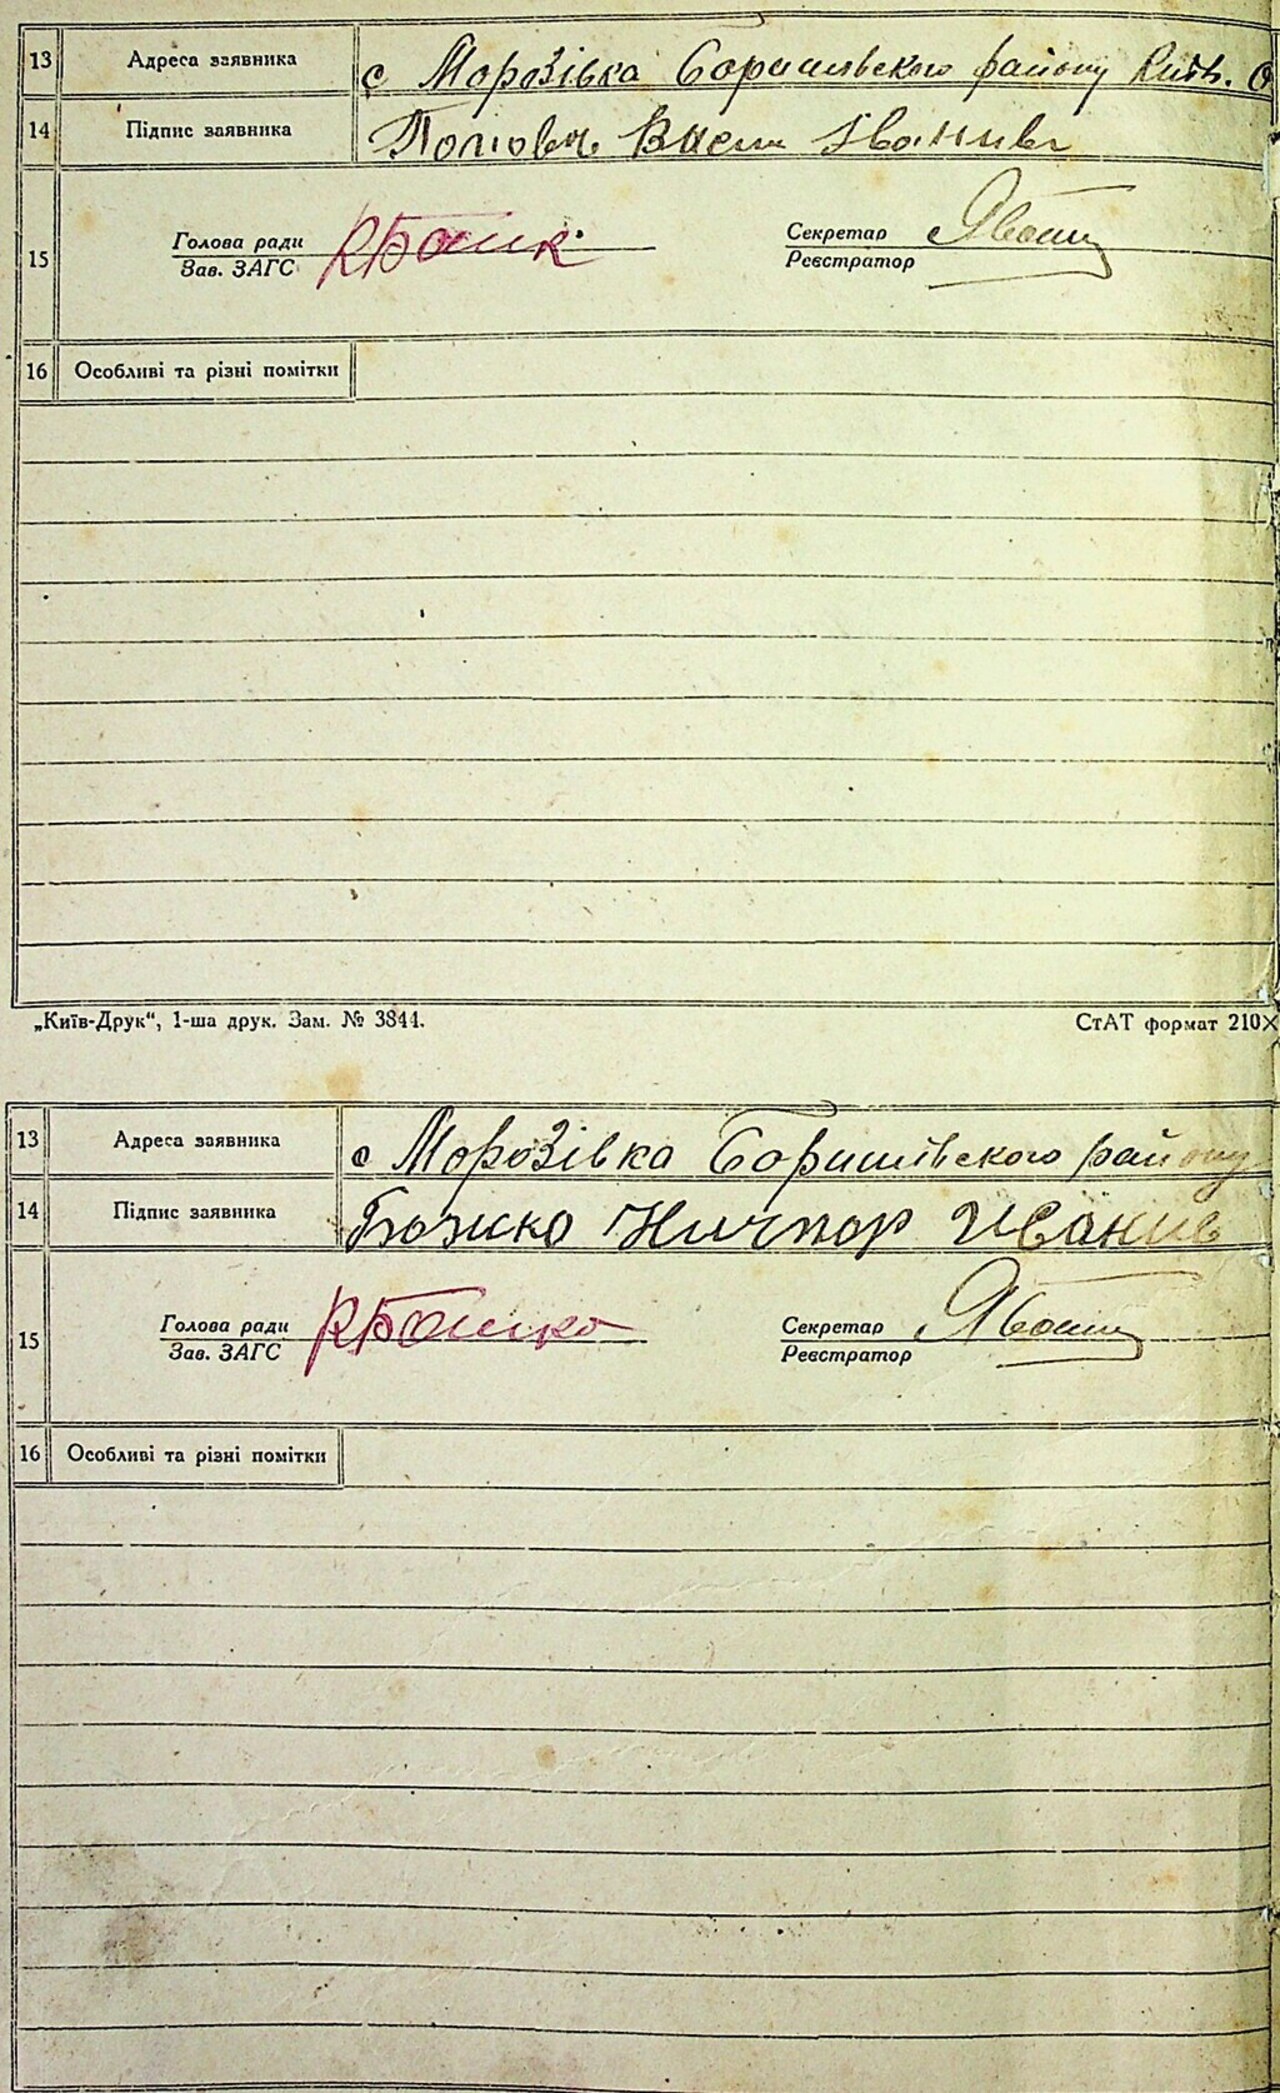 13 Адреса заявника с Морозівка Баришівського району Київ. О
14 Підпис заявника Іванив
15 Голова ради Секретар
Зав. ЗАГС Реєстратор
16 Особливі та різні помітки
„Київ-Друк“, 1-ша друк. Зам. № 3844. СтАТ формат 210×
13 Адреса заявника с Морозівка Баришівського району
14 Підпис заявника Божко Ничпор Иванив
15 Голова ради Секретар
Зав. ЗАГС Реєстратор
16 Особливі та різні помітки